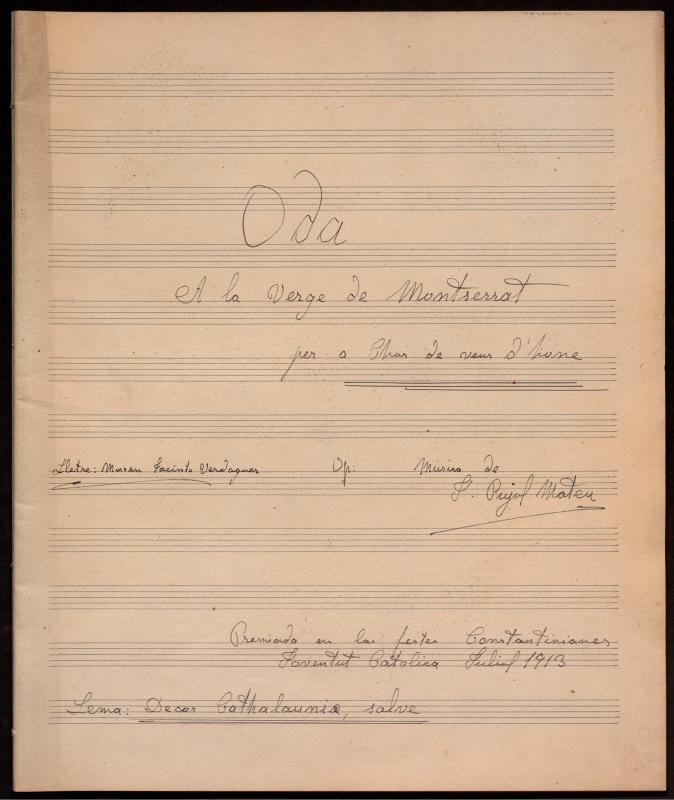 Oda
A la Verge de Montserrat
per a Chor de veus d'home
Lletre: Mossen Jacinto Verdaguer Op: Música de
J. Pujol Mateu
Premiada en las festes Constantinianes
Joventut Catolica Juliol 1913
Lema: Decor Cathalauniæ, salve